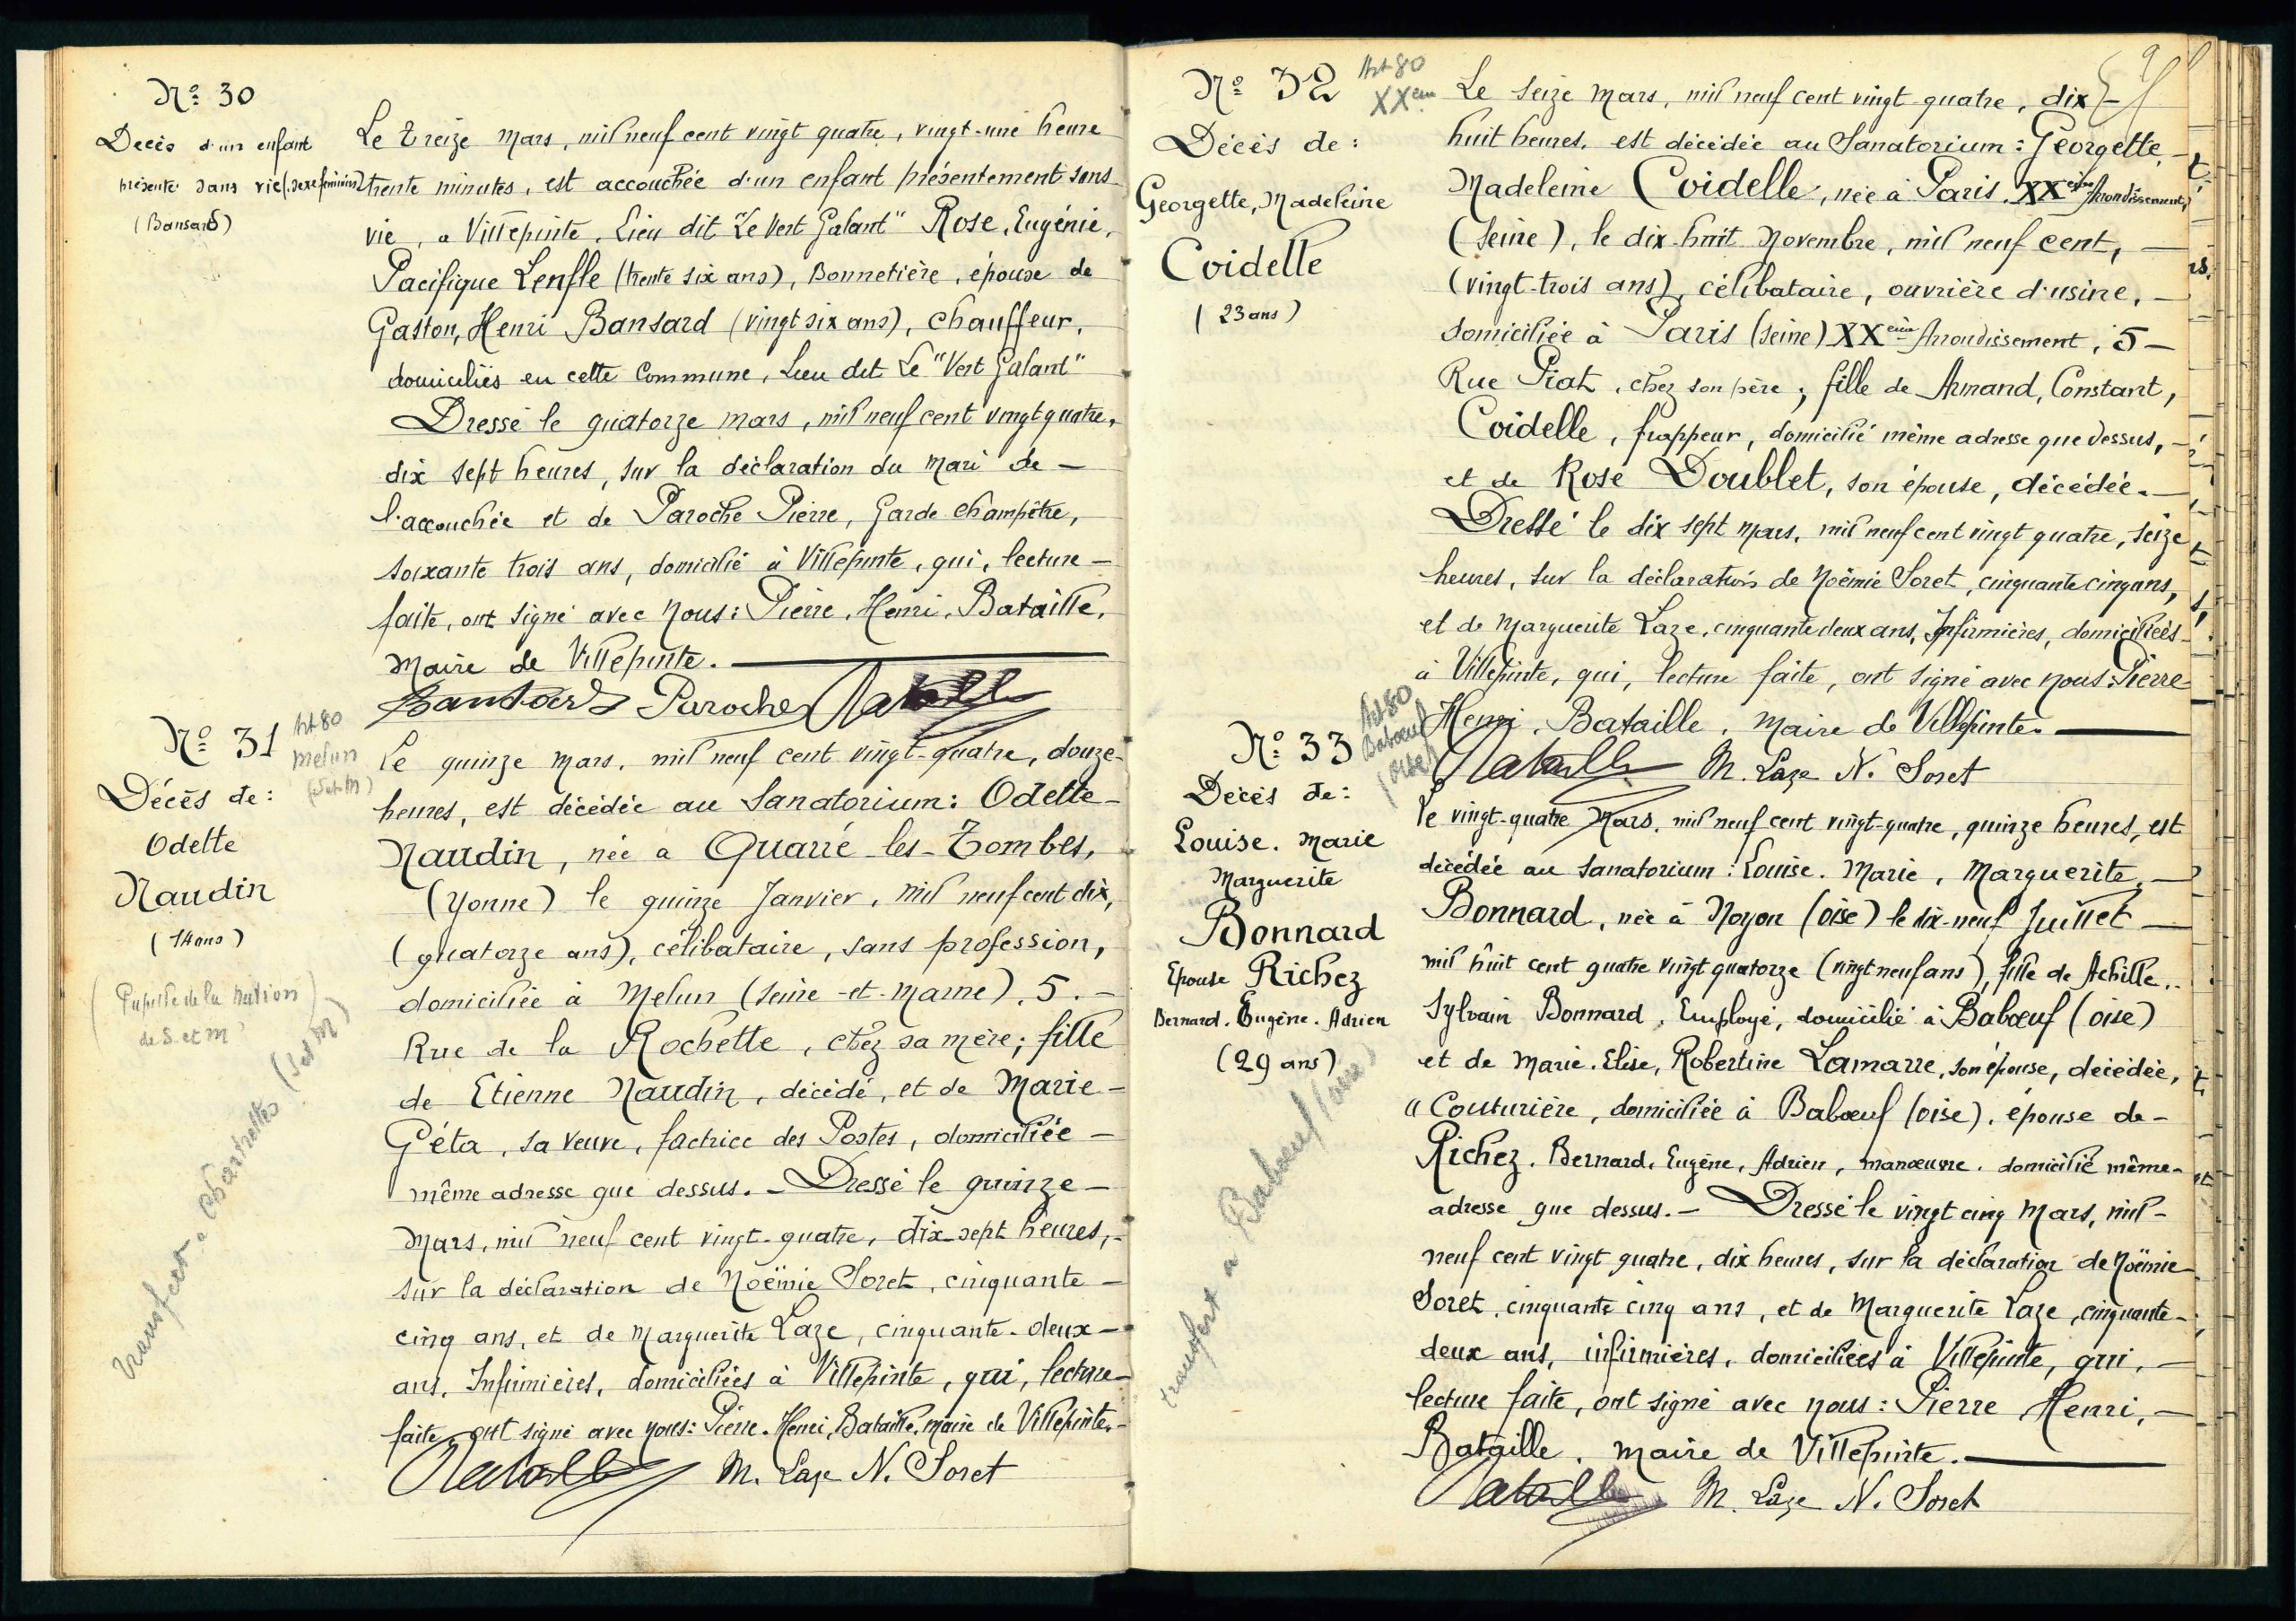 N° 30
Décès d'un enfant
présenté sans vie (sexe féminin)
(Bansard)
Le treize Mars, mil neuf cent vingt quatre, vingt-une heure
trente minutes, est accouchée d'un enfant présentement sans
vie, a Villepinte, Lieu dit "Le Vert Galant" Rose, Eugénie,
Pacifique Lenfle (trente six ans), Bonnetière, épouse de
Gaston, Henri Bansard (vingt six ans), chauffeur,
domiciliés en cette Commune, Lieu dit Le "Vert Galant"
Dressé le quatorze mars, mil neuf cent vingt quatre,
dix sept heures, sur la déclaration du Mari de —
l'accouchée et de Paroche Pierre, Garde champêtre,
soixante trois ans, domicilié à Villepinte, qui, lecture —
faite, ont signé avec Nous: Pierre, Henri, Bataille,
Maire de Villepinte. —
Bansard Paroche Bataille
N° 31
Art 80
Melun
(S et M)
Décès de:
Odette
Naudin
(14 ans)
(Pupille de la Nation)
de S. et M
transfert a Chartrettes (S et M)
Le quinze Mars, mil neuf cent vingt-quatre, douze-
heures, est décédée au Sanatorium: Odette —
Naudin, née a Quarré-les-Tombes,
(Yonne) le quinze Janvier, mil neuf cent dix,
(quatorze ans), célibataire, sans profession,
domiciliée à Melun (Seine-et-Marne), 5. —
Rue de la Rochette, chez sa mère; fille
de Etienne Naudin, décédé, et de Marie —
Géta, sa veuve, factrice des Postes, domiciliée —
même adresse que dessus. — Dressé le quinze —
Mars, mil neuf cent vingt-quatre, dix-sept heures, —
sur la déclaration de Noëmie Soret, cinquante —
cinq ans, et de Marguerite Laze, cinquante-deux —
ans, Infirmières, domiciliées à Villepinte, qui, lecture —
faite, ont signé avec Nous: Pierre, Henri, Bataille, maire de Villepinte. —
Bataille M. Laze N. Soret
9
N° 32
Art 80
XXem
Décès de:
Georgette, Madeleine
Coidelle
(23 ans)
Le Seize Mars, mil neuf cent vingt-quatre, dix —
huit heures, est décédée au Sanatorium: Georgette, —
Madeleine Coidelle, née à Paris, XXeme Arrondissement,
(Seine), le dix-huit Novembre, mil neuf cent, —
(vingt-trois ans), célibataire, ouvrière d'usine, —
domiciliée à Paris (Seine) XXeme Arrondissement, 5 —
Rue Piat, chez son père; fille de Armand, Constant,
Coidelle, frappeur, domicilié même adresse que dessus, —
et de Rose Doublet, son épouse, décédée. —
Dressé le dix sept Mars, mil neuf cent vingt quatre, seize
heures, sur la déclaration de Noëmie Soret, cinquante cinq ans,
et de Marguerite Laze, cinquante deux ans, Infirmières, domiciliées —
à Villepinte, qui, lecture faite, ont signé avec Nous: Pierre
Henri, Bataille, Maire de Villepinte. —
Bataille M. Laze N. Soret
N° 33
Art 80
Babœuf
(Oise)
Décès de:
Louise. Marie
Marguerite
Bonnard
Epouse Richez
Bernard. Eugène. Adrien
(29 ans)
transfert a Babœuf (Oise)
Le vingt-quatre Mars, mil neuf cent vingt-quatre, quinze heures, est
décédée au Sanatorium: Louise. Marie, Marguerite, —
Bonnard, née à Noyon (Oise) le dix-neuf Juillet —
mil huit cent quatre vingt quatorze (vingt neuf ans), fille de Achille,
Sylvain Bonnard, Employé, domicilié à Babœuf (Oise)
et de Marie. Elise, Robertine Lamarre, son épouse, décédée,
" Couturière, domiciliée à Babœuf (Oise), épouse de —
Richez. Bernard, Eugène, Adrien, manœuvre, domicilié même —
adresse que dessus. — Dressé le vingt cinq Mars, mil —
neuf cent vingt quatre, dix heures, sur la déclaration de Noëmie
Soret, cinquante cinq ans, et de Marguerite Laze, cinquante —
deux ans, infirmières, domiciliées à Villepinte, qui, —
lecture faite, ont signé avec nous: Pierre Henri, —
Bataille, maire de Villepinte. —
Bataille M. Laze N. Soret